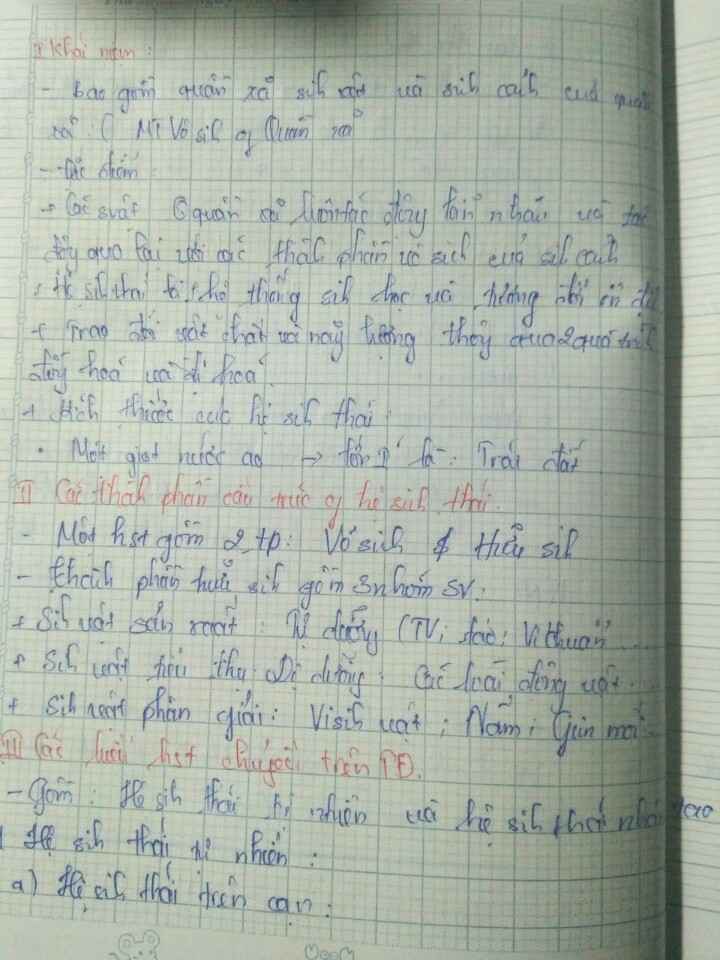 I Khái niệm :
- Bao gồm quần xã sih vật và sih cảh của quần
xã (MT Vô sih of Quần xã
- Đặc điểm :
+ Các svật quần xã luôn tác động lẫn nhau và tác
động qua lại với các thàh phần vô sih của sih cảh
+ Hệ sih thái là hệ thống sih học và tương đối ổn địh
+ Trao đổi vật chất và năg lượng thôg qua 2 quá trìh
đồg hoá và dị hoá
+ Kích thước của hệ sih thái :
• Một giọt nước ao → lớn I' là : Trái đất
II Các thàh phần cấu trúc of hệ sih thái.
- Một hst gồm 2 tp : Vô sih & Hữu sih
- Thàh phần hữu sih gồm 3 nhóm SV :
+ Sih vật sản xuất : Tự dưỡng (TV; tảo; Vi khuẩn ...
+ Sih vật tiêu thụ : Dị dưỡng : Các loài động vật ...
+ Sih vật phân giải : Vi sih vật ; Nấm ; Giun
III Các kiểu hst chủ yếu trên TĐ.
- Gồm : Hệ sih thái tự nhiên và hệ sih thái nhân tạo
1 Hệ sih thái tự nhiên :
a) Hệ sih thái trên cạn :